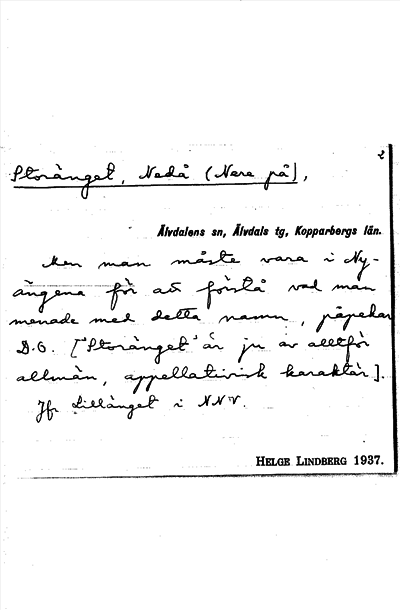 2
Storänget, Nedå (Nere på),
Älvdalens sn, Älvdals tg, Kopparbergs län.
Men man måste vara i Ny-
ängena för att förstå vad man
menade med detta namn, påpekar
D.O. ['Storänget' är ju av alltför
allmän, appellativisk karaktär].
Jfr Lillänget i NNV.
HELGE LINDBERG 1937.